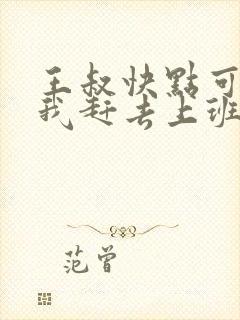 王叔快點可
我赶去上班
范曾